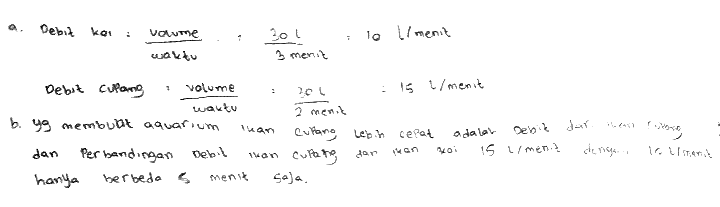 a. Debit koi : volume : 30 l : 10 l/menit
waktu 3 menit
Debit cupang : volume : 30 l : 15 l/menit
waktu 2 menit
b. yg membuat aquarium ikan cupang lebih cepat adalah Debit dari ikan cupang
dan Perbandingan Debit ikan cupang dan ikan koi 15 l/menit dengan 10 l/menit
hanya berbeda 5 menit saja.